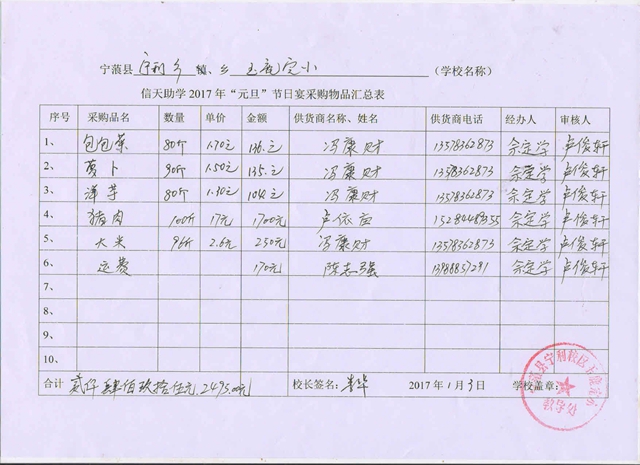 宁蒗县 宁利乡 镇、乡 玉鹿完小 (学校名称)
信天助学 2017 年“元旦”节日宴采购物品汇总表
序号 采购品名 数量 单价 金额 供货商名称、姓名 供货商电话 经办人 审核人
1、 包包菜 80斤 1.70元 136.元 冯康财 13578362873 余定学 卢俊轩
2、 萝卜 90斤 1.50元 135.元 冯康财 13578362873 余定学 卢俊轩
3、 洋芋 80斤 1.30元 104元 冯康财 13578362873 余定学 卢俊轩
4、 猪肉 100斤 17元 1700元 卢依 15284448355 余定学 卢俊轩
5、 大米 96斤 2.6元 250元 冯康财 13578362873 余定学 卢俊轩
6、 运费 170元 陈志强 13988857291 余定学 卢俊轩
7、
8、
9、
10、
合计 贰仟肆佰玖拾伍元 2495.00元 校长签名: 2017 年 1 月 3 日 学校盖章: